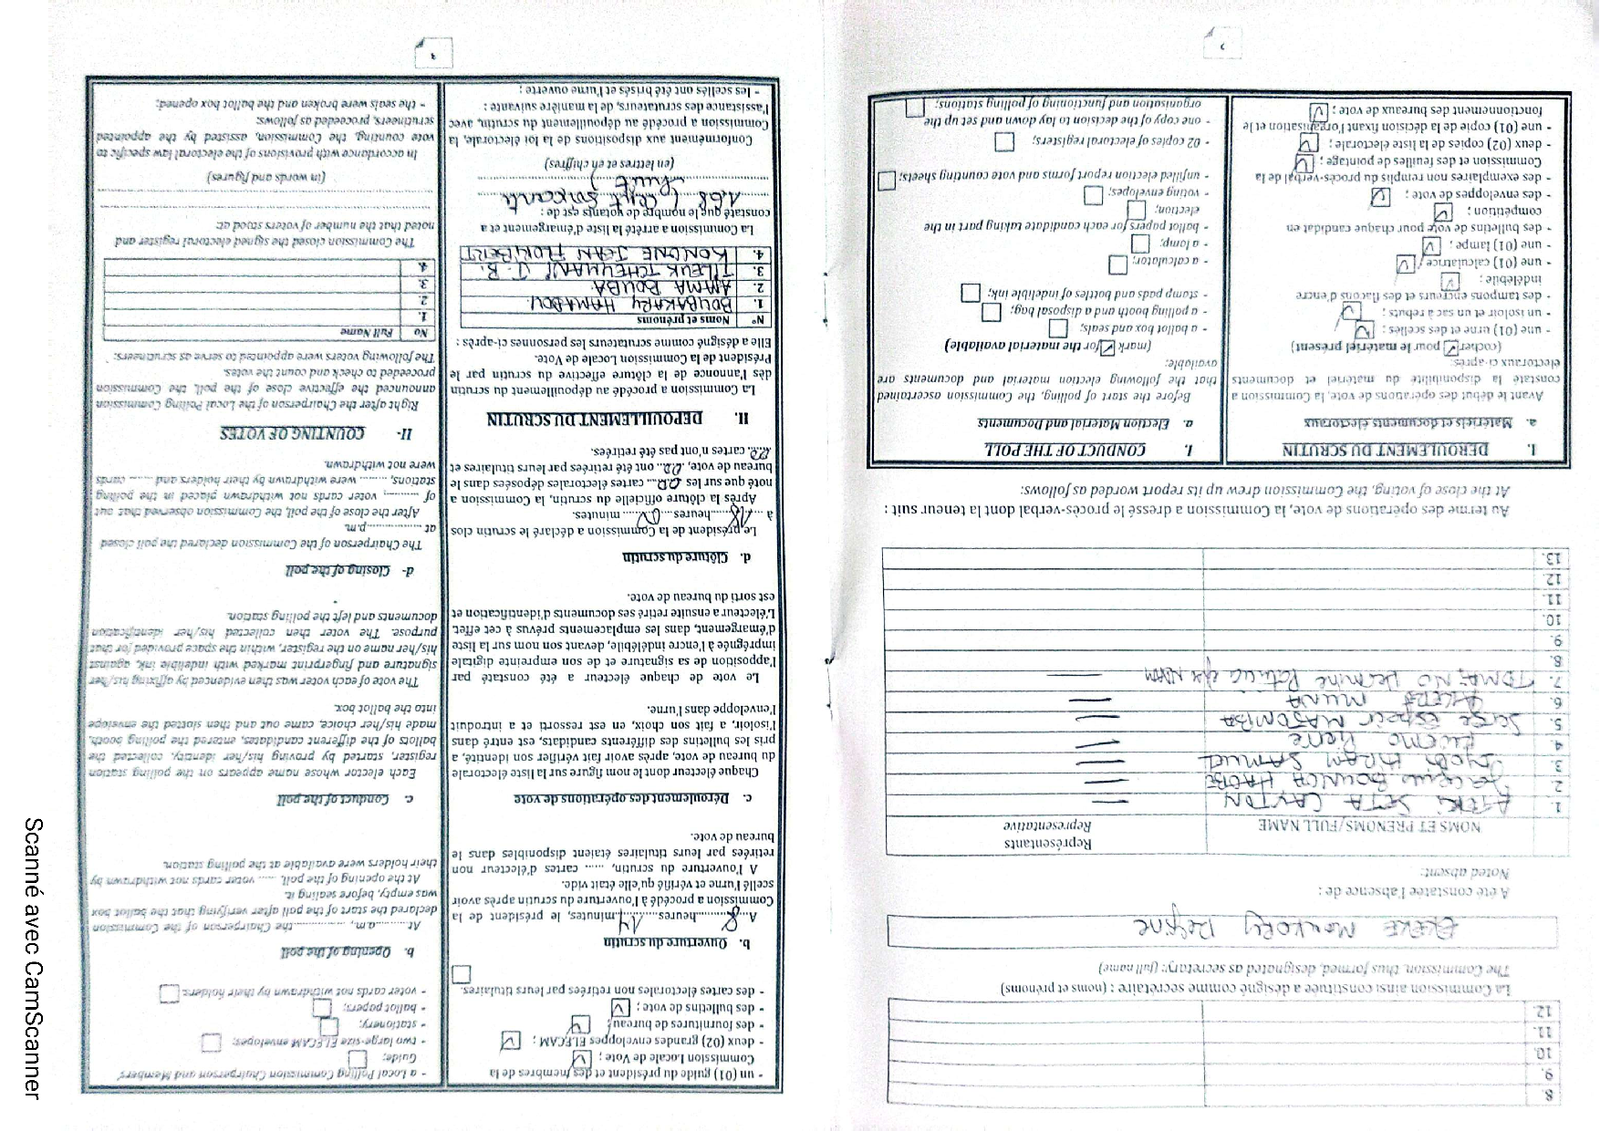 8.
9.
10.
11.
12.
La Commission ainsi constituée a désigné comme secrétaire : (noms et prénoms)
The Commission, thus formed, designated as secretary: (full name)
Régine
A été constatée l'absence de :
Noted absent:
NOMS ET PRENOMS/FULL NAME
Représentants
Representative
1.
2
3
4
5.
6.
7.
8.
9.
10.
11.
12
13.
Au terme des opérations de vote, la Commission a dressé le procès-verbal dont la teneur suit :
At the close of voting, the Commission drew up its report worded as follows:
I. DEROULEMENT DU SCRUTIN
a. Matériels et documents électoraux
Avant le début des opérations de vote, la Commission a
constaté la disponibilité du matériel et documents
électoraux ci-après:
(cocher ✓ pour le matériel présent)
- une (01) urne et des scellés :
- un isoloir et un sac à rebuts :
- des tampons encreurs et des flacons d'encre
indélébile :
- une (01) calculatrice :
- une (01) lampe :
- des bulletins de vote pour chaque candidat en
compétition ;
- des enveloppes de vote ;
- des exemplaires non remplis du procès-verbal de la
Commission et des feuilles de pointage ;
- deux (02) copies de la liste électorale ;
- une (01) copie de la décision fixant l'organisation et le
fonctionnement des bureaux de vote ;
I. CONDUCT OF THE POLL
a. Election Material and Documents
Before the start of polling, the Commission ascertained
that the following election material and documents are
available:
(mark ✓ for the material available)
- a ballot box and seals;
- a polling booth and a disposal bag;
- stamp pads and bottles of indelible ink;
- a calculator;
- a lamp;
- ballot papers for each candidate taking part in the
election;
- voting envelopes;
- unfilled election report forms and vote counting sheets;
- 02 copies of electoral registers;
- one copy of the decision to lay down and set up the
organisation and functioning of polling stations;
2
- un (01) guide du président et des membres de la
Commission Locale de Vote ;
- deux (02) grandes enveloppes ELECAM ;
- des fournitures de bureau ;
- des bulletins de vote ;
- des cartes électorales non retirées par leurs titulaires.
b. Ouverture du scrutin
A 8 heures 14 minutes, le président de la
Commission a procédé à l'ouverture du scrutin après avoir
scellé l'urne et vérifié qu'elle était vide.
A l'ouverture du scrutin, ...... cartes d'électeur non
retirées par leurs titulaires étaient disponibles dans le
bureau de vote.
c. Déroulement des opérations de vote
Chaque électeur dont le nom figure sur la liste électorale
du bureau de vote, après avoir fait vérifier son identité, a
pris les bulletins des différents candidats, est entré dans
l'isoloir, a fait son choix, en est ressorti et a introduit
l'enveloppe dans l'urne.
Le vote de chaque électeur a été constaté par
l'apposition de sa signature et de son empreinte digitale
imprégnée à l'encre indélébile, devant son nom sur la liste
d'émargement, dans les emplacements prévus à cet effet.
L'électeur a ensuite retiré ses documents d'identification et
est sorti du bureau de vote.
d. Clôture du scrutin
Le président de la Commission a déclaré le scrutin clos
à 18 heures 00 minutes.
Après la clôture officielle du scrutin, la Commission a
noté que sur les 00 cartes électorales déposées dans le
bureau de vote, 00 ont été retirées par leurs titulaires et
00 cartes n'ont pas été retirées.
II. DEPOUILLEMENT DU SCRUTIN
La Commission a procédé au dépouillement du scrutin
dès l'annonce de la clôture effective du scrutin par le
Président de la Commission Locale de Vote.
Elle a désigné comme scrutateurs les personnes ci-après :
N° Noms et prénoms
1. BOUBAKARY HAMADOU
2. AMMA BOUBA
3. J. B.
4. KONCNE JEAN FLORIBERT
La Commission a arrêté la liste d'émargement et a
constaté que le nombre de votants est de :
168 (cent soixante
huit)
(en lettres et en chiffres)
Conformément aux dispositions de la loi électorale, la
Commission a procédé au dépouillement du scrutin, avec
l'assistance des scrutateurs, de la manière suivante :
- les scellés ont été brisés et l'urne ouverte ;
- a Local Polling Commission Chairperson and Members'
Guide;
- two large-size ELECAM envelopes;
- stationery;
- ballot papers;
- voter cards not withdrawn by their holders.
b. Opening of the poll
At ............a.m, ............the Chairperson of the Commission
declared the start of the poll after verifying that the ballot box
was empty, before sealing it.
At the opening of the poll, ...... voter cards not withdrawn by
their holders were available at the polling station.
c. Conduct of the poll
Each elector whose name appears on the polling station
register, started by proving his/her identity, collected the
ballots of the different candidates, entered the polling booth,
made his/her choice, came out and then slotted the envelope
into the ballot box.
The vote of each voter was then evidenced by affixing his/her
signature and fingerprint marked with indelible ink, against
his/her name on the register, within the space provided for that
purpose. The voter then collected his/her identification
documents and left the polling station.
d- Closing of the poll
The Chairperson of the Commission declared the poll closed
at ..................p.m.
After the close of the poll, the Commission observed that out
of ........., voter cards not withdrawn placed in the polling
stations, ........ were withdrawn by their holders and ...... cards
were not withdrawn.
II- COUNTING OF VOTES
Right after the Chairperson of the Local Polling Commission
announced the effective close of the poll, the Commission
proceeded to check and count the votes.
The following voters were appointed to serve as scrutineers:
No Full Name
1.
2.
3.
4.
The Commission closed the signed electoral register and
noted that the number of voters stood at:
(in words and figures)
In accordance with provisions of the electoral law specific to
vote counting, the Commission, assisted by the appointed
scrutineers, proceeded as follows:
- the seals were broken and the ballot box opened;
3
Scanné avec CamScanner